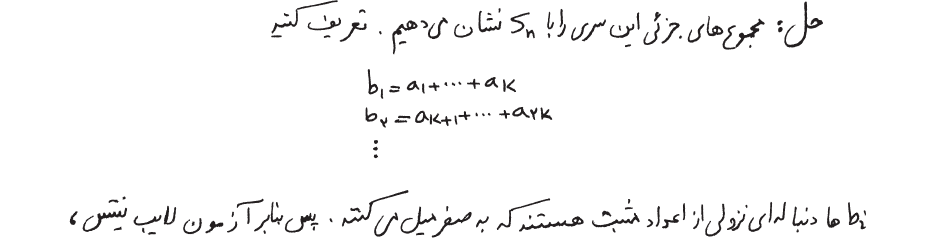 حل: مجموع‌های جزئی این سری را با Sₙ نشان می‌دهیم. تعریف کنید
b₁ = a₁ + ⋯ + aₖ
b₂ = aₖ₊₁ + ⋯ + a₂ₖ
⋮
bᵢ ها دنباله‌ای نزولی از اعداد مثبت هستند که به صفر میل می‌کنند. پس بنابر آزمون لایب نیتس،